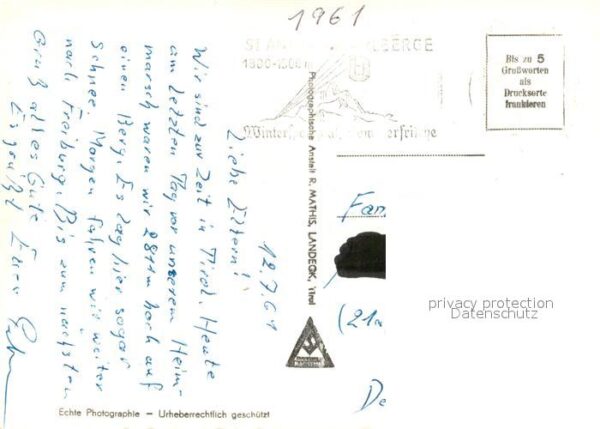 1961
ST. AN
1300-1500 m
Wintersp
mmerfrische
Bis zu 5
Grußworten
als
Drucksorte
frankieren
12.7.61
Liebe Eltern!
Wir sind zur Zeit in Tirol. Heute
am letzten Tag vor unserem Heim-
marsch waren wir 2811m hoch auf
einen Berg. Es lag hier sogar
Schnee. Morgen fahren wir weiter
nach Freiburg. Bis zum nächsten
Gruß alles Gute
Es grüßt Euer
Photographische Anstalt R. MATHIS, LANDECK, Tirol
Fam
(21a
De
privacy protection
Datenschutz
Echte Photographie – Urheberrechtlich geschützt